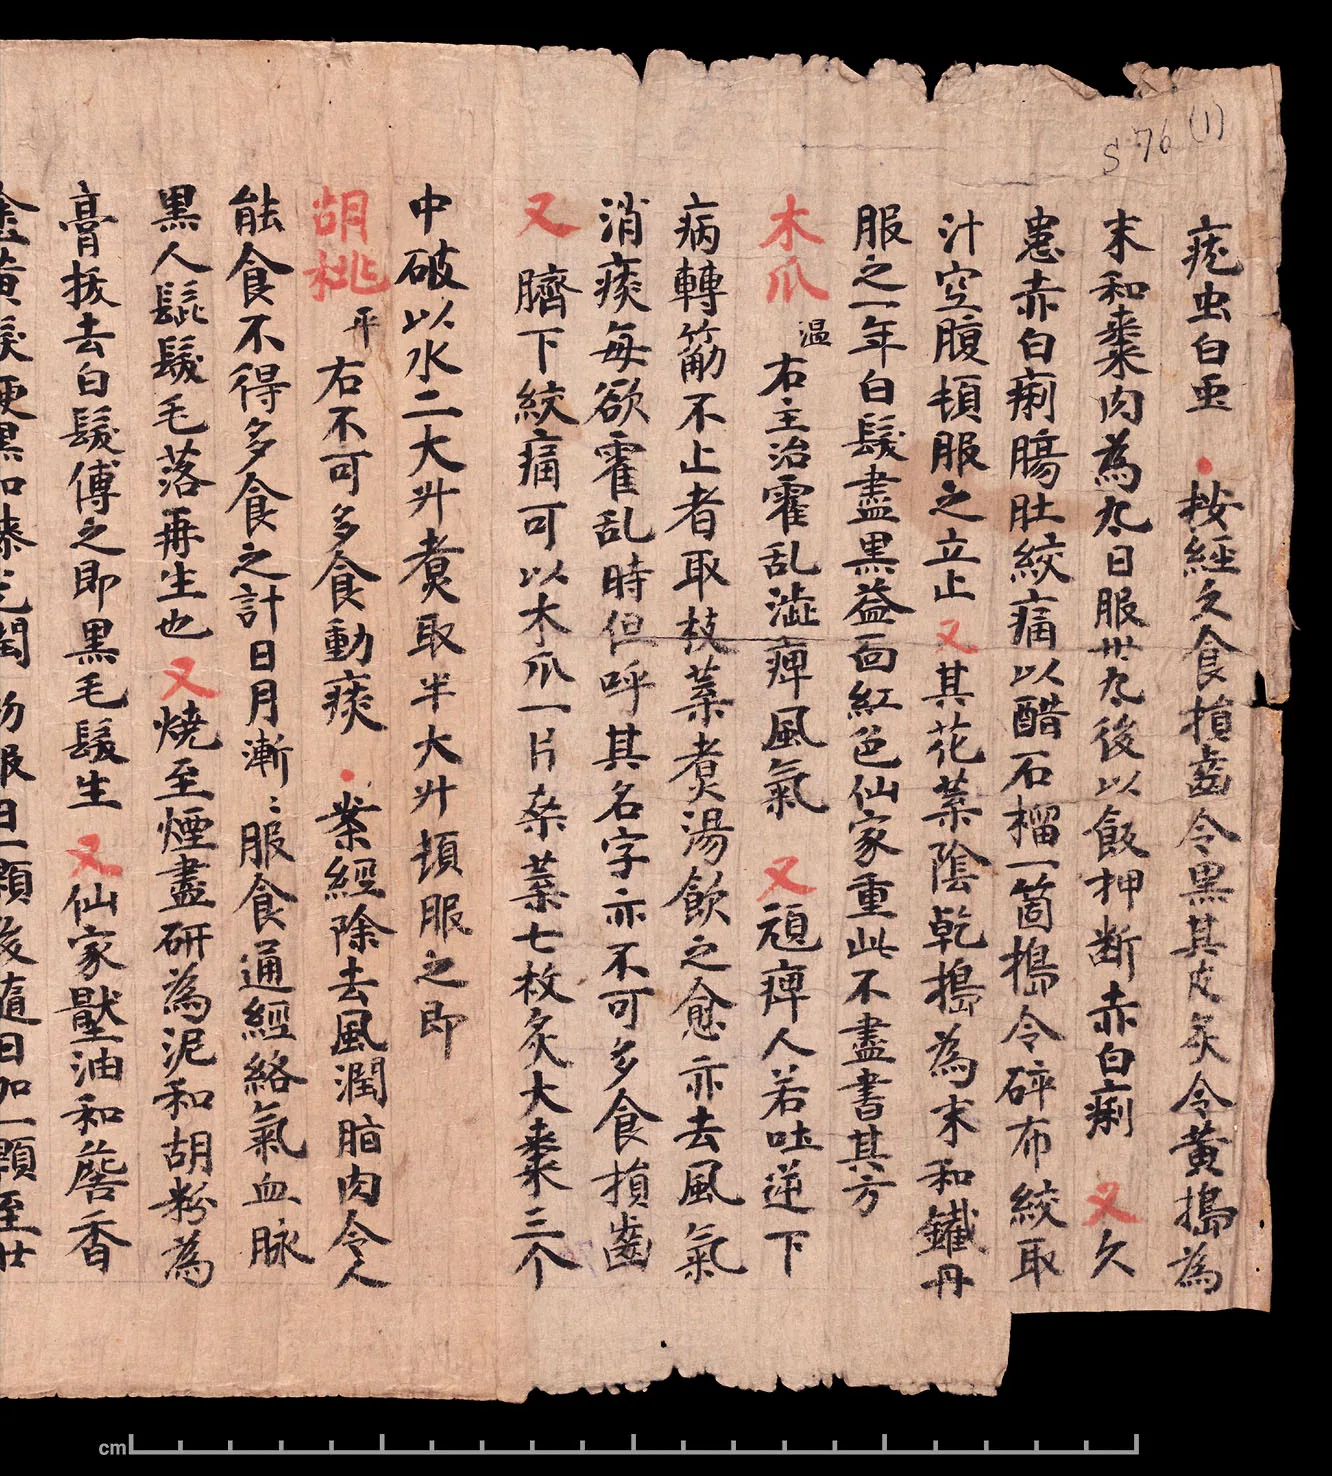 S 76 (1)
疣虫白虫 按經久食損齒令黑其皮炙令黃搗為
末和棗肉為丸日服卅丸後以飯押断赤白痢 又久
患赤白痢腸肚絞痛以醋石榴一箇搗令碎布絞取
汁空腹頓服之立止 又其花葉陰乾搗為末和鐵丹
服之一年白髮盡黑益面紅色仙家重此不盡書其方
木爪 温 右主治霍乱澁痺風氣 又頑痺人若吐逆下
病轉筋不止者取枝葉煑湯飲之愈亦去風氣
消痰每欲霍乱時但呼其名字亦不可多食損齒
又 臍下絞痛可以木爪一片桒葉七枚炙大棗三个
中破以水二大升煑取半大升頓服之即
胡桃 平 右不可多食動痰 案經除去風潤脂肉令人
能食不得多食之計日月漸〻服食通經絡氣血脉
黑人髭髮毛落再生也 又燒至煙盡研為泥和胡粉為
膏拔去白髮傅之即黑毛髮生 又仙家壓油和詹香
塗黃髮便黑如漆光潤 初服日一顆後隨日加一顆至廿
cm